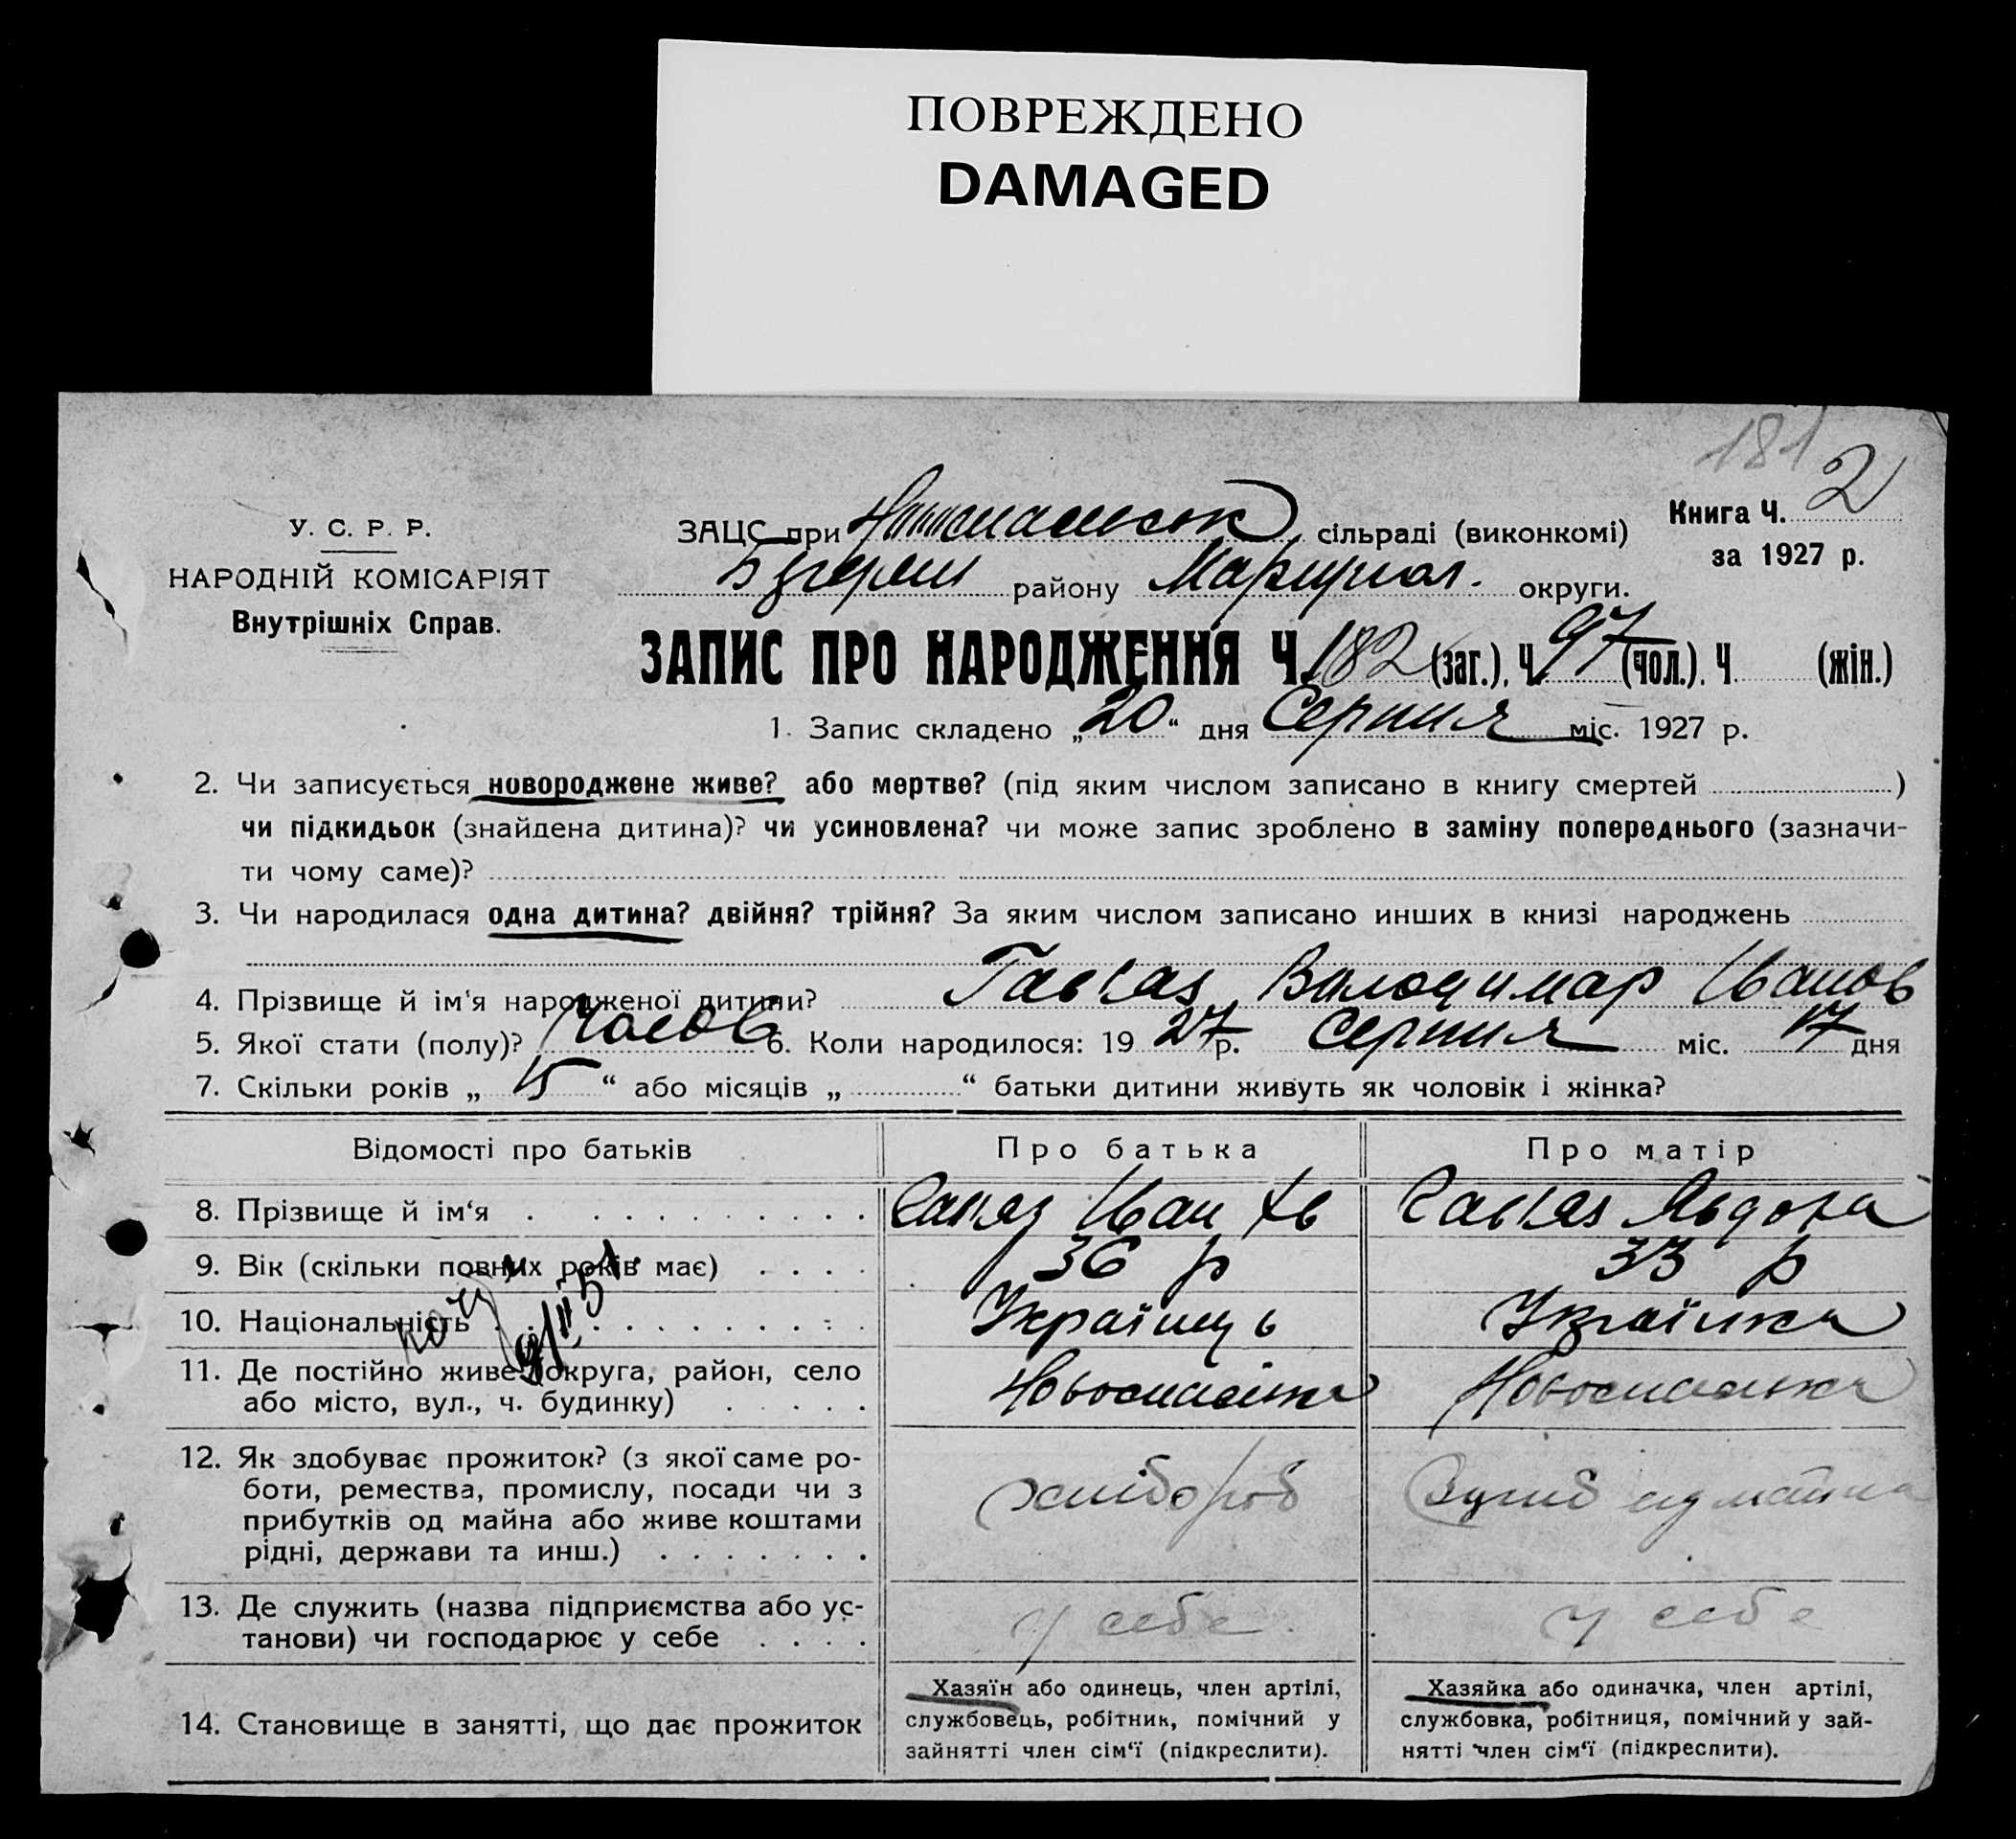 ПОВРЕЖДЕНО
DAMAGED
181
У. С. Р. Р.
НАРОДНІЙ КОМІСАРІЯТ
Внутрішніх Справ.
Книга Ч. 2
за 1927 р.
ЗАЦС при сільраді (виконкомі)
району Маріупол. округи.
ЗАПИС ПРО НАРОДЖЕННЯ Ч. 182 (заг.), Ч. 97 (чол.). Ч. (жін.)
1. Запис складено „20“ дня Серпня міс. 1927 р.
2. Чи записується новороджене живе? або мертве? (під яким числом записано в книгу смертей )
чи підкидьок (знайдена дитина)? чи усиновлена? чи може запис зроблено в заміну попереднього (зазначи-
ти чому саме)?
3. Чи народилася одна дитина? двійня? трійня? За яким числом записано инших в книзі народжень
4. Прізвище й ім‘я народженої дитини? Володимар Іванов
5. Якої стати (полу)? Чолов 6. Коли народилося: 1927 р. Серпня міс. 17 дня
7. Скільки років „15“ або місяців „ “ батьки дитини живуть як чоловік і жінка?
Відомості про батьків Про батька Про матір
8. Прізвище й ім‘я Іван Явдоха
9. Вік (скільки повних років має) 36 р 33 р
10. Національність Українець Українка
11. Де постійно живе (округа, район, село
або місто, вул., ч. будинку) Новоспаська Новоспаська
12. Як здобуває прожиток? (з якої саме ро-
боти, ремества, промислу, посади чи з
прибутків од майна або живе коштами
рідні, держави та инш.) хлібороб
13. Де служить (назва підприємства або ус-
танови) чи господарює у себе у себе у себе
14. Становище в занятті, що дає прожиток
Хазяїн або одинець, член артілі,
службовець, робітник, помічний у
зайнятті член сім‘ї (підкреслити).
Хазяйка або одиначка, член артілі,
службовка, робітниця, помічний у зай-
нятті член сім‘ї (підкреслити).